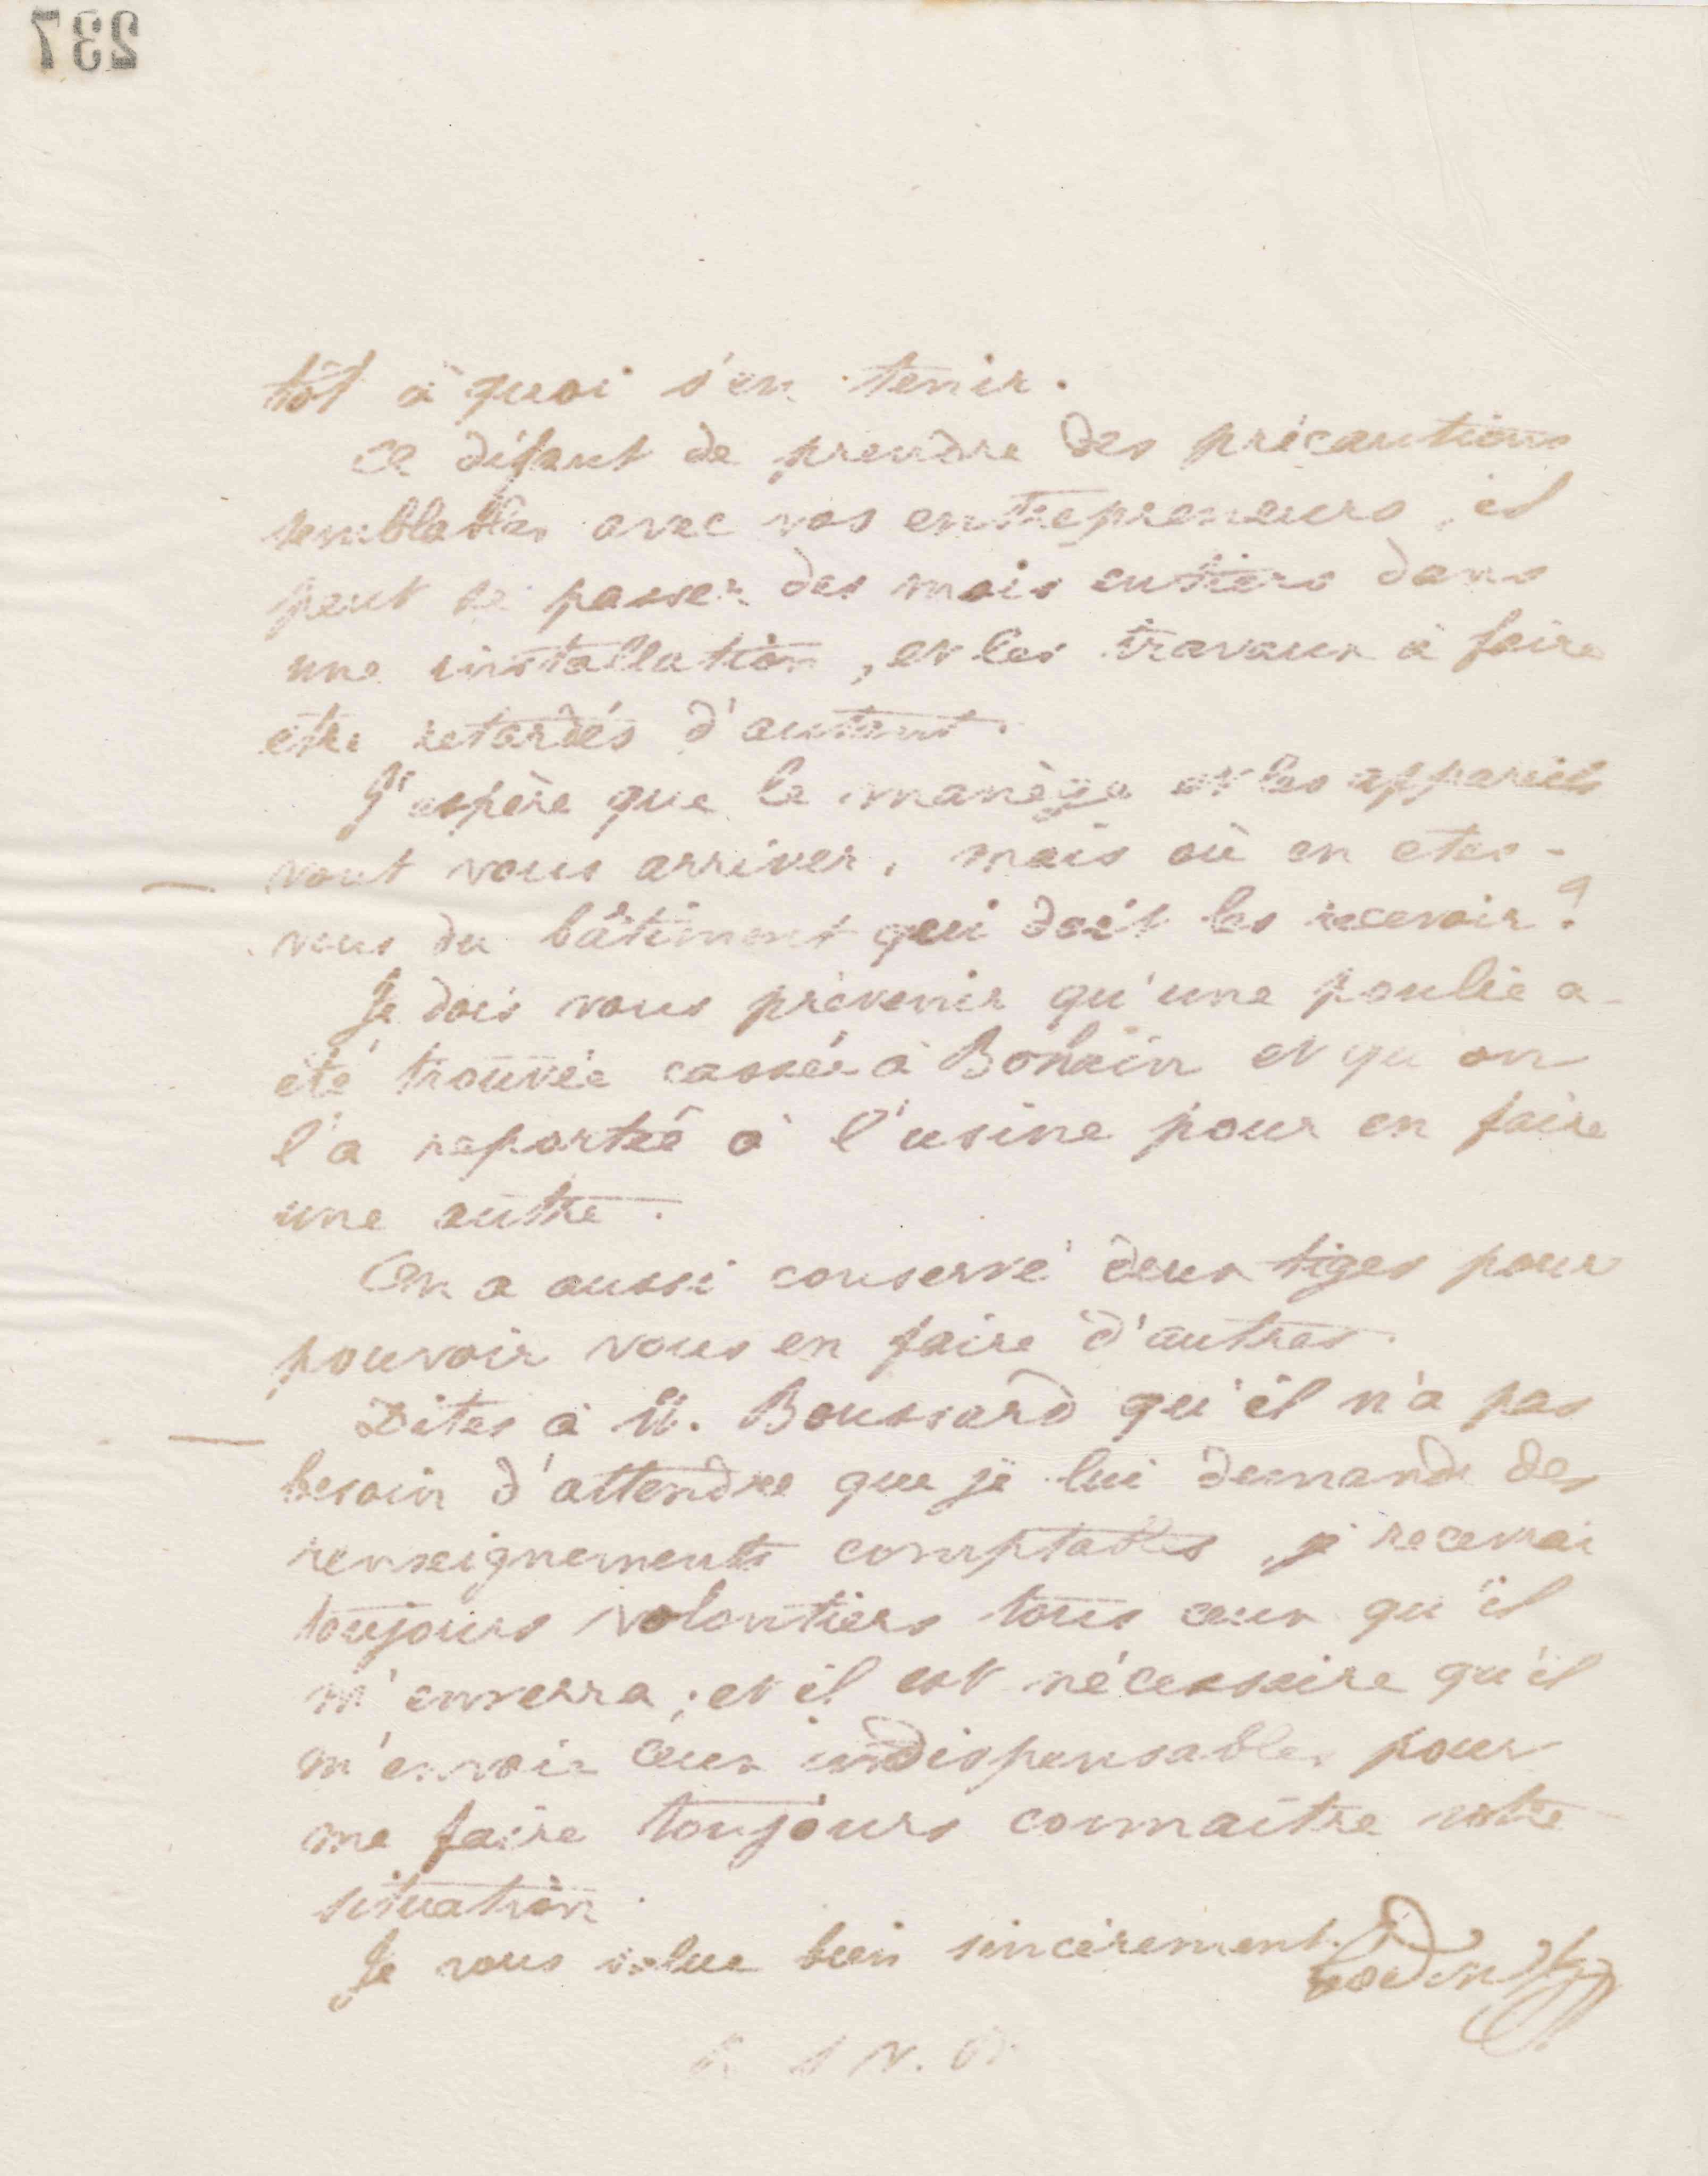 237
tôt à quoi s'en tenir.
à défaut de prendre des précautions
semblables avec vos entrepreneurs, il
peut se passer des mois entiers dans
une installation, et les travaux à faire
être retardés d'autant.
J'espère que le manège et les appareils
vont vous arriver, mais où en etes-
vous du bâtiment qui doit les recevoir ?
Je dois vous prévenir qu'une poulie a
été trouvée cassée à Bohain et qu'on
l'a reportée à l'usine pour en faire
une autre.
On a aussi conservé deux tiges pour
pouvoir vous en faire d'autres.
Dites à M. Boussard qu'il n'a pas
besoin d'attendre que je lui demande des
renseignements comptables, je recevrai
toujours volontiers tous ceux qu'il
m'enverra ; et il est nécessaire qu'il
m'envoie ceux indispensables pour
me faire toujours connaitre votre
situation.
Je vous salue bien sincèrement.
Godin